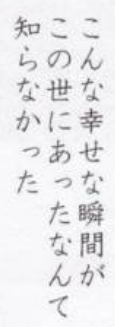 こんな幸せな瞬間が
この世にあったなんて
知らなかった